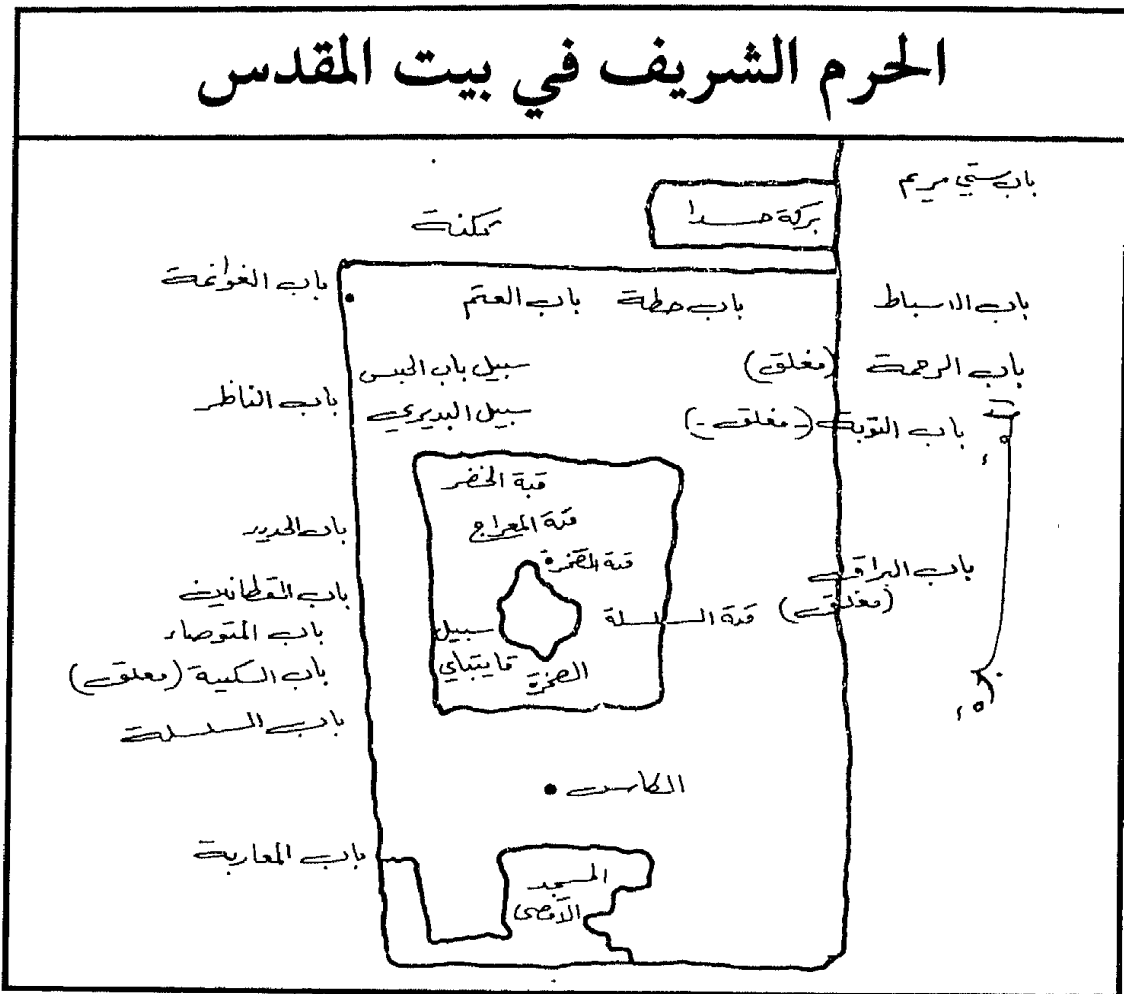 الحرم الشريف في بيت المقدس
باب ستي مريم
بركة حسدا
ثكنة
باب الغوانمة
باب العتم
باب حطة
باب الاسباط
سبيل باب الحبس
باب الرحمة (مغلق)
باب الناظر
سبيل البديري
باب التوبة (- مغلق -)
قبة الخضر
قبة المعراج
باب الحديد
قبة الصخرة
باب البراق
(مغلق)
باب القطانين
قبة السلسلة
باب المتوضاء
سبيل
قايتباي
الصخرة
باب السكينة (مغلق)
باب السلسلة
الكاس
باب المغاربة
المسجد
الاقصى